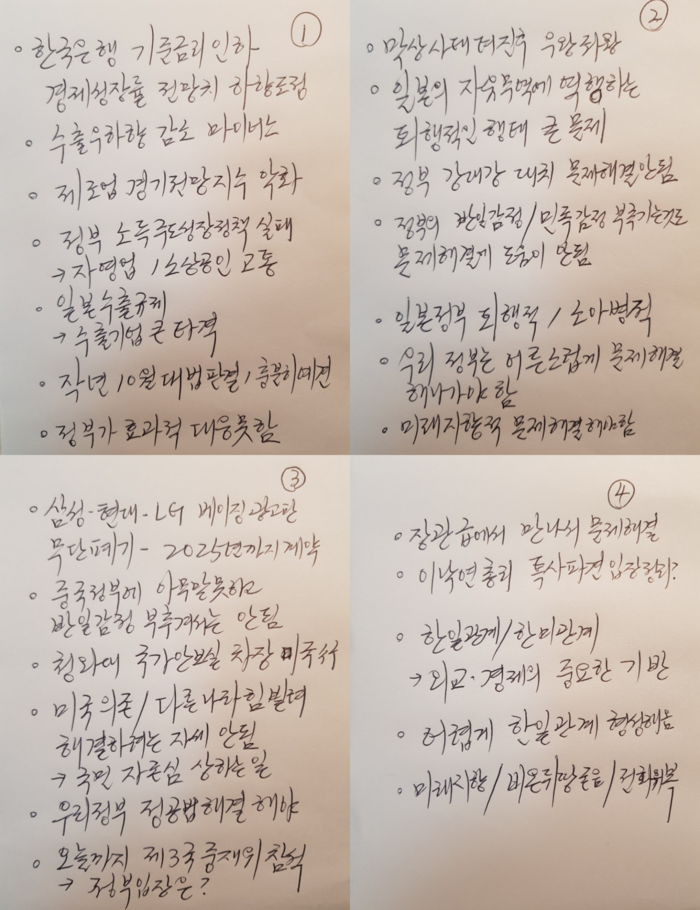 ①
◦ 한국은행 기준금리인하
경제성장률 전망치 하향조정
◦ 수출우하향 감소 마이너스
◦ 제조업 경기전망지수 악화
◦ 정부 소득주도성장정책 실패
→ 자영업 / 소상공인 고통
◦ 일본수출규제
→ 수출기업 큰 타격
◦ 작년 10월 대법판결, 충분히예견
◦ 정부가 효과적 대응못함
②
◦ 막상사태터진후 우왕좌왕
◦ 일본의 자유무역에 역행하는
퇴행적인 행태 큰 문제
◦ 정부 강대강 대치 문제해결안됨
◦ 정부의 반일감정/민족감정 부추기는것도
문제해결게 도움이 안됨
◦ 일본정부 퇴행적 / 소아병적
◦ 우리 정부는 어른스럽게 문제해결
해나가야 함
◦ 미래지향적 문제해결해야함
③
◦ 삼성-현대-LG 베이징광고판
무단폐기 - 2025년까지계약
◦ 중국정부에 아무말못하고
반일감정 부추겨서는 안됨
◦ 청와대 국가안보실 차장 미국서
◦ 미국의존/다른나라힘빌려
해결하려는 자세 안됨
→ 국민 자존심 상하는일
◦ 우리정부 정공법해결 해야
◦ 오늘까지 제3국중재위참석
→ 정부입장은?
④
◦ 장관급에서 만나서 문제해결
◦ 이낙연총리 특사파견입장정리?
◦ 한일관계/한미관계
→ 외교·경제의 중요한 기반
◦ 어렵게 한일관계 형성해옴
◦ 미래지향/비온뒤땅굳음/전화위복